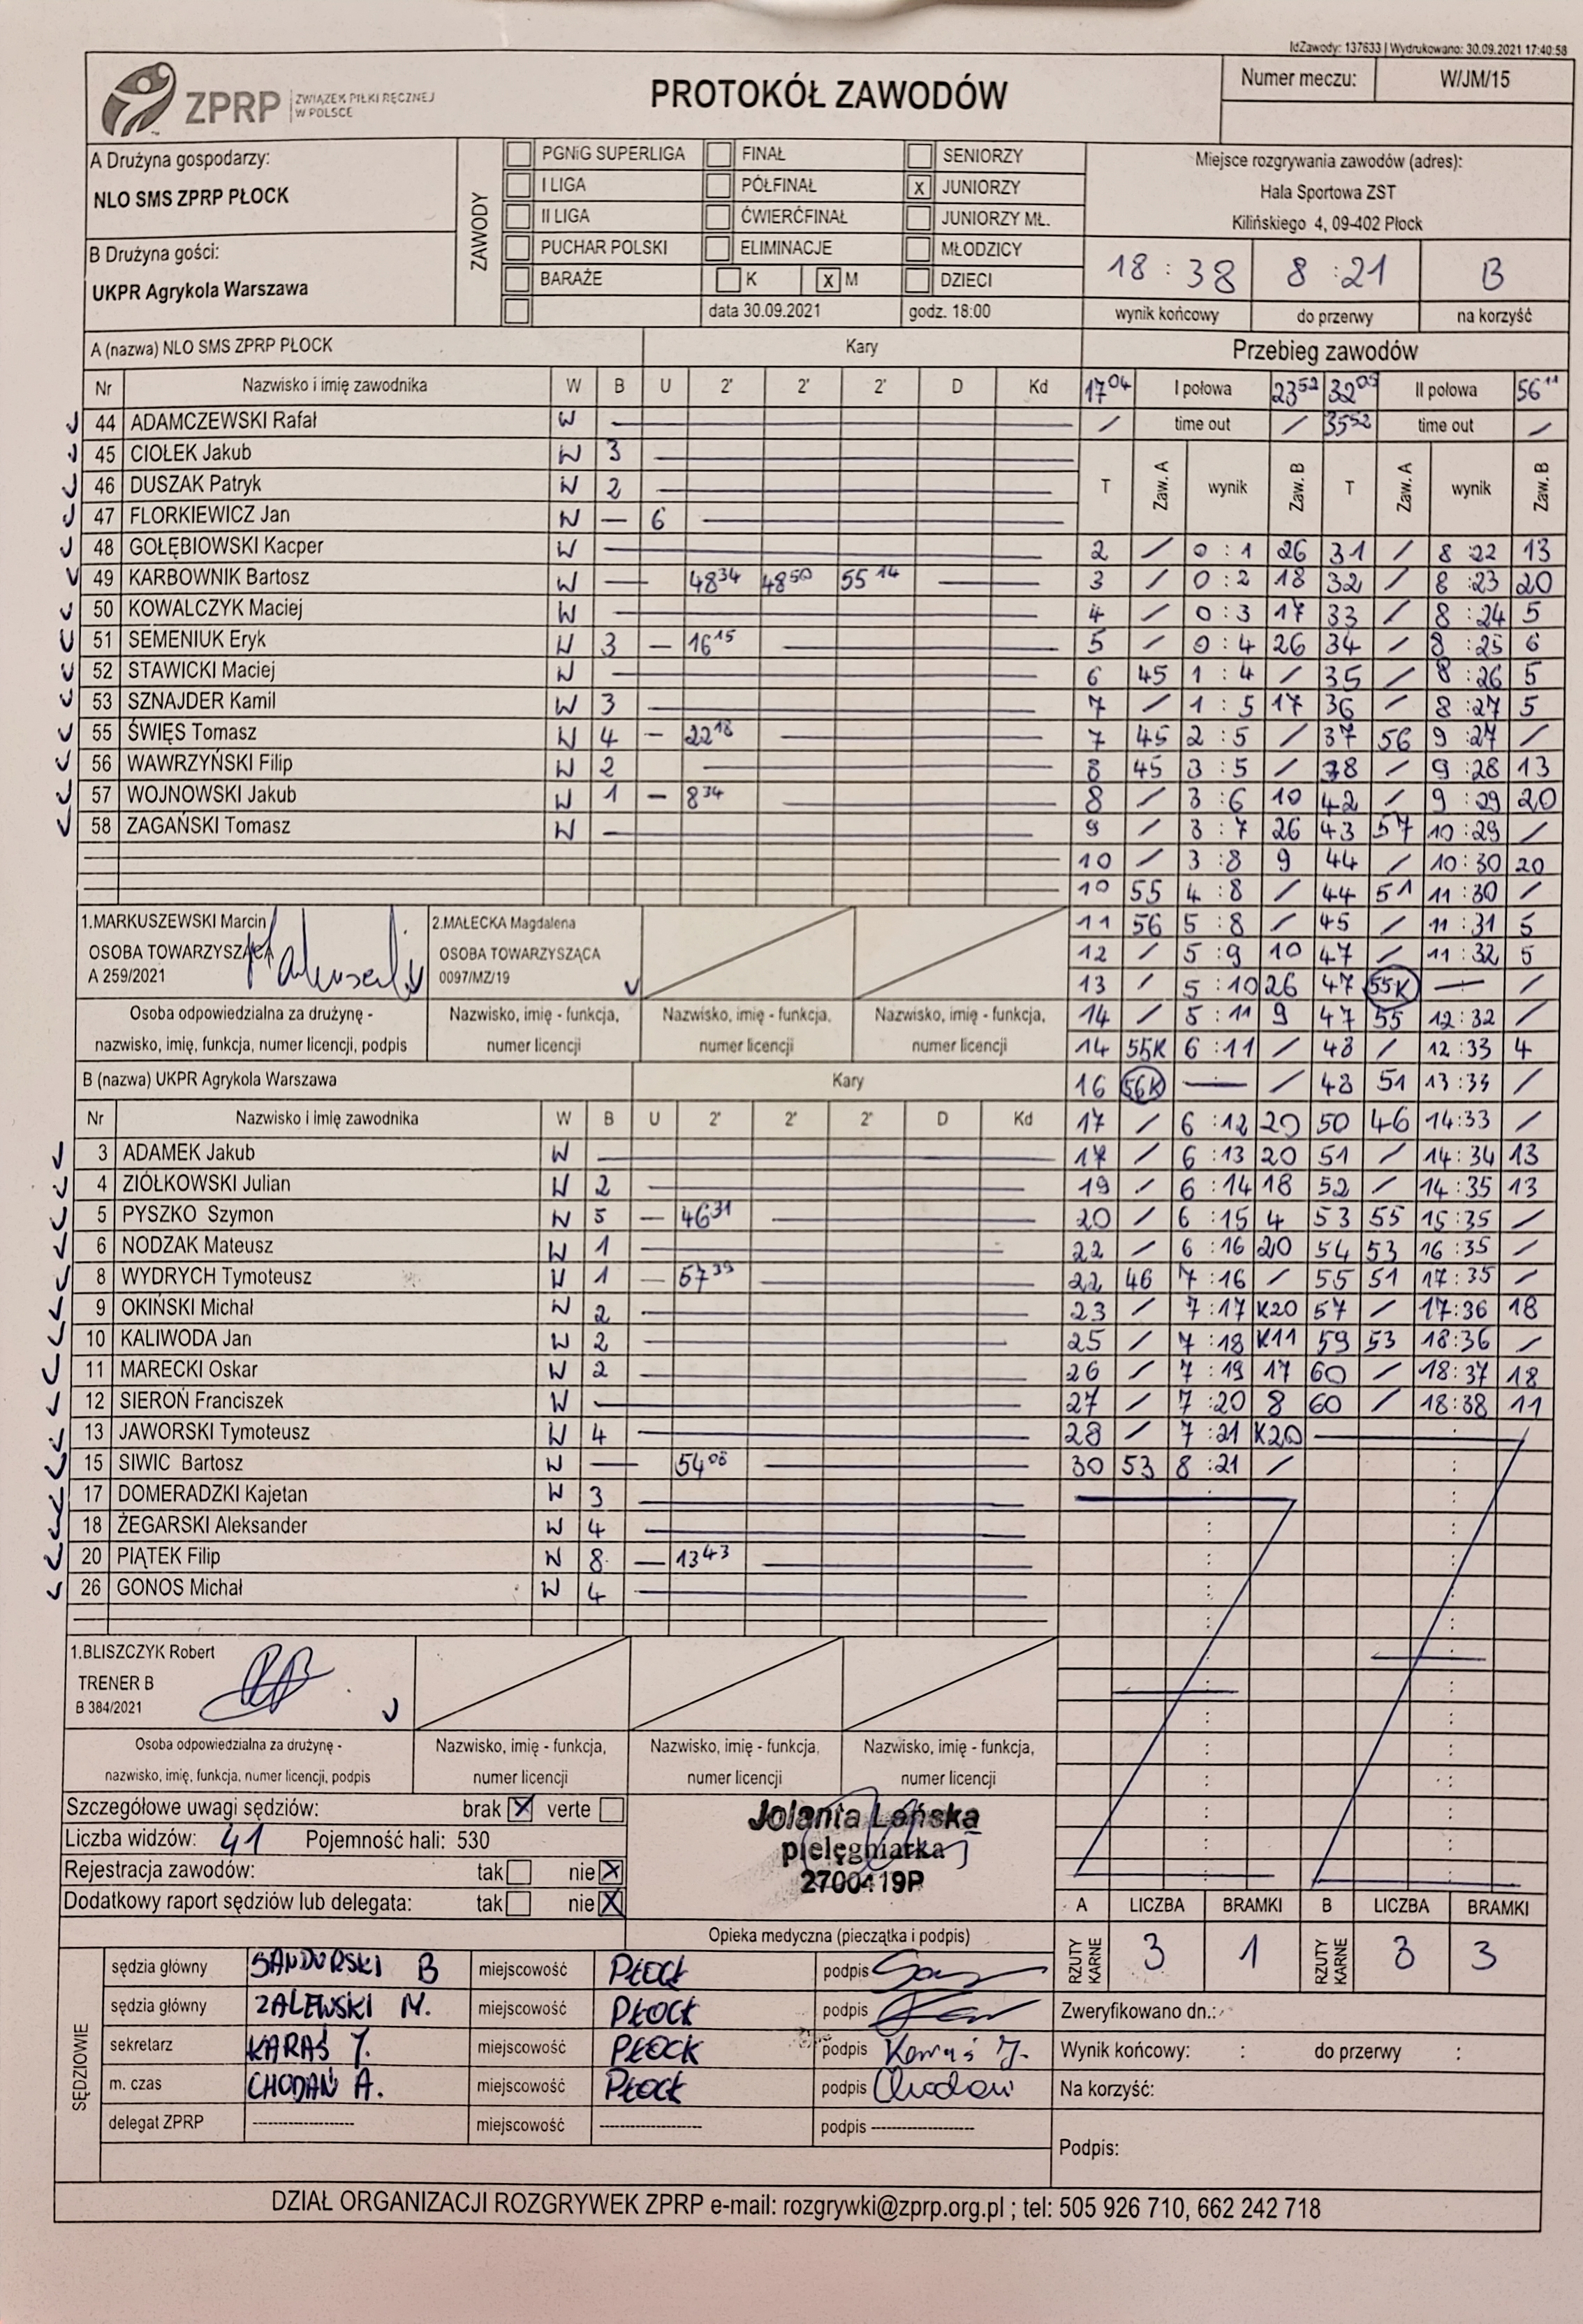 IdZawody: 137633 | Wydrukowano: 30.09.2021 17:40:58
ZPRP ZWIĄZEK PIŁKI RĘCZNEJ W POLSCE
PROTOKÓŁ ZAWODÓW
Numer meczu: W/JM/15
A Drużyna gospodarzy:
NLO SMS ZPRP PŁOCK
B Drużyna gości:
UKPR Agrykola Warszawa
ZAWODY
PGNiG SUPERLIGA FINAŁ SENIORZY
I LIGA PÓŁFINAŁ x JUNIORZY
II LIGA ĆWIERĆFINAŁ JUNIORZY MŁ.
PUCHAR POLSKI ELIMINACJE MŁODZICY
BARAŻE K x M DZIECI
data 30.09.2021 godz. 18:00
Miejsce rozgrywania zawodów (adres):
Hala Sportowa ZST
Kilińskiego 4, 09-402 Płock
18 : 38 8 : 21 B
wynik końcowy do przerwy na korzyść
A (nazwa) NLO SMS ZPRP PŁOCK Kary
Nr Nazwisko i imię zawodnika W B U 2' 2' 2' D Kd
44 ADAMCZEWSKI Rafał W
45 CIOŁEK Jakub W 3
46 DUSZAK Patryk W 2
47 FLORKIEWICZ Jan W — 6
48 GOŁĘBIOWSKI Kacper W
49 KARBOWNIK Bartosz W — 48 34 48 50 55 14
50 KOWALCZYK Maciej W
51 SEMENIUK Eryk W 3 — 16 15
52 STAWICKI Maciej W
53 SZNAJDER Kamil W 3
55 ŚWIĘS Tomasz W 4 — 22 18
56 WAWRZYŃSKI Filip W 2
57 WOJNOWSKI Jakub W 1 — 8 34
58 ZAGAŃSKI Tomasz W
1.MARKUSZEWSKI Marcin
OSOBA TOWARZYSZĄCA
A 259/2021
2.MAŁECKA Magdalena
OSOBA TOWARZYSZĄCA
0097/MZ/19
Osoba odpowiedzialna za drużynę -
nazwisko, imię, funkcja, numer licencji, podpis
Nazwisko, imię - funkcja,
numer licencji
Nazwisko, imię - funkcja,
numer licencji
Nazwisko, imię - funkcja,
numer licencji
B (nazwa) UKPR Agrykola Warszawa Kary
Nr Nazwisko i imię zawodnika W B U 2' 2' 2' D Kd
3 ADAMEK Jakub W
4 ZIÓŁKOWSKI Julian W 2
5 PYSZKO Szymon W 5 — 46 31
6 NODZAK Mateusz W 1
8 WYDRYCH Tymoteusz W 1 — 57 39
9 OKIŃSKI Michał W 2
10 KALIWODA Jan W 2
11 MARECKI Oskar W 2
12 SIEROŃ Franciszek W
13 JAWORSKI Tymoteusz W 4
15 SIWIC Bartosz W — 54 08
17 DOMERADZKI Kajetan W 3
18 ŻEGARSKI Aleksander W 4
20 PIĄTEK Filip W 8 — 13 43
26 GONOS Michał W 4
1.BLISZCZYK Robert
TRENER B
B 384/2021
Osoba odpowiedzialna za drużynę -
nazwisko, imię, funkcja, numer licencji, podpis
Nazwisko, imię - funkcja,
numer licencji
Nazwisko, imię - funkcja,
numer licencji
Nazwisko, imię - funkcja,
numer licencji
Przebieg zawodów
17 04 I połowa 23 52 32 05 II połowa 56 11
/ time out / 35 52 time out /
T Zaw. A wynik Zaw. B T Zaw. A wynik Zaw. B
2 / 0 : 1 26 31 / 8 : 22 13
3 / 0 : 2 18 32 / 8 : 23 20
4 / 0 : 3 17 33 / 8 : 24 5
5 / 0 : 4 26 34 / 8 : 25 6
6 45 1 : 4 / 35 / 8 : 26 5
7 / 1 : 5 17 36 / 8 : 27 5
7 45 2 : 5 / 37 56 9 : 27 /
8 45 3 : 5 / 38 / 9 : 28 13
8 / 3 : 6 10 42 / 9 : 29 20
9 / 3 : 7 26 43 57 10 : 29 /
10 / 3 : 8 9 44 / 10 : 30 20
10 55 4 : 8 / 44 51 11 : 30 /
11 56 5 : 8 / 45 / 11 : 31 5
12 / 5 : 9 10 47 / 11 : 32 5
13 / 5 : 10 26 47 55K — /
14 / 5 : 11 9 47 55 12 : 32 /
14 55K 6 : 11 / 48 / 12 : 33 4
16 56K — / 48 51 13 : 33 /
17 / 6 : 12 20 50 46 14 : 33 /
17 / 6 : 13 20 51 / 14 : 34 13
19 / 6 : 14 18 52 / 14 : 35 13
20 / 6 : 15 4 53 55 15 : 35 /
22 / 6 : 16 20 54 53 16 : 35 /
22 46 7 : 16 / 55 51 17 : 35 /
23 / 7 : 17 K20 57 / 17 : 36 18
25 / 7 : 18 K11 59 53 18 : 36 /
26 / 7 : 19 17 60 / 18 : 37 18
27 / 7 : 20 8 60 / 18 : 38 11
28 / 7 : 21 K20
30 53 8 : 21 /
Szczegółowe uwagi sędziów: brak X verte
Liczba widzów: 41 Pojemność hali: 530
Rejestracja zawodów: tak nie X
Dodatkowy raport sędziów lub delegata: tak nie X
Jolanta Lońska
pielęgniarka
2700419P
Opieka medyczna (pieczątka i podpis)
A LICZBA BRAMKI B LICZBA BRAMKI
RZUTY KARNE 3 1 RZUTY KARNE 3 3
SĘDZIOWIE
sędzia główny SANDURSKI B miejscowość PŁOCK podpis
sędzia główny ZALEWSKI M. miejscowość PŁOCK podpis
sekretarz KARAŚ J. miejscowość PŁOCK podpis Karaś J.
m. czas CHODAŃ A. miejscowość PŁOCK podpis Chodań
delegat ZPRP -------------------- miejscowość -------------------- podpis --------------------
Zweryfikowano dn.:
Wynik końcowy: : do przerwy :
Na korzyść:
Podpis:
DZIAŁ ORGANIZACJI ROZGRYWEK ZPRP e-mail: rozgrywki@zprp.org.pl ; tel: 505 926 710, 662 242 718